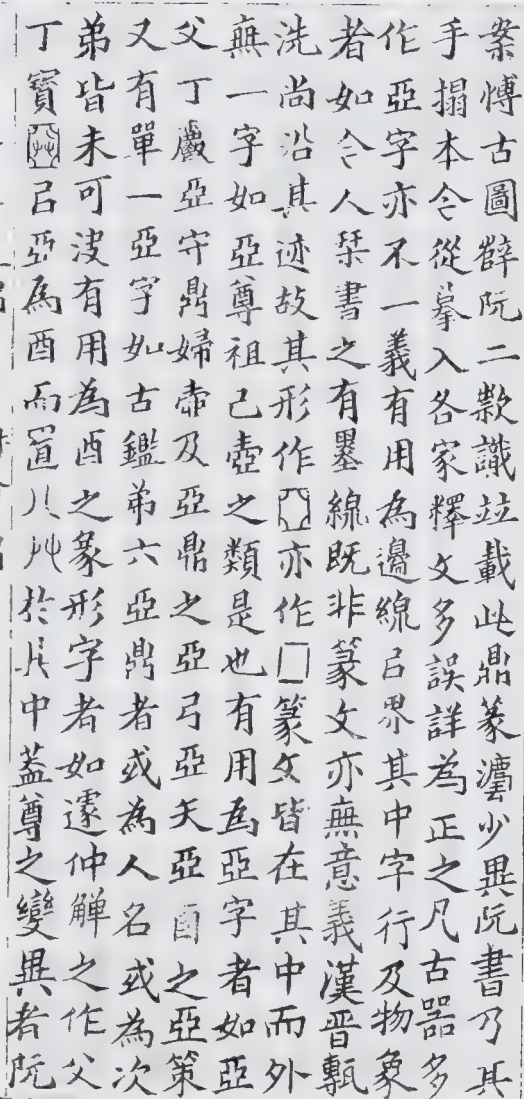 案愽古圖薛阮二款識竝載此鼎篆灋少異阮書乃其
手搨本今從摹入各家釋文多誤詳為正之凡古器多
作亞字亦不一義有用為邊線㠯界其中字行及物象
者如今人栞書之有墨線既非篆文亦無意義漢晉甎
洗尚沿其迹故其形作亞亦作囗篆文皆在其中而外
無一字如亞尊祖己壺之類是也有用為亞字者如亞
父丁巖亞守鼎婦壺及亞鼎之亞弓亞矢亞酉之亞策
又有單一亞字如古鑑弟六亞鼎者或為人名或為次
弟皆未可定有用為酉之象形字者如遽仲觶之作父
丁寶㠯亞為酉而置八艸於其中蓋尊之變異者阮